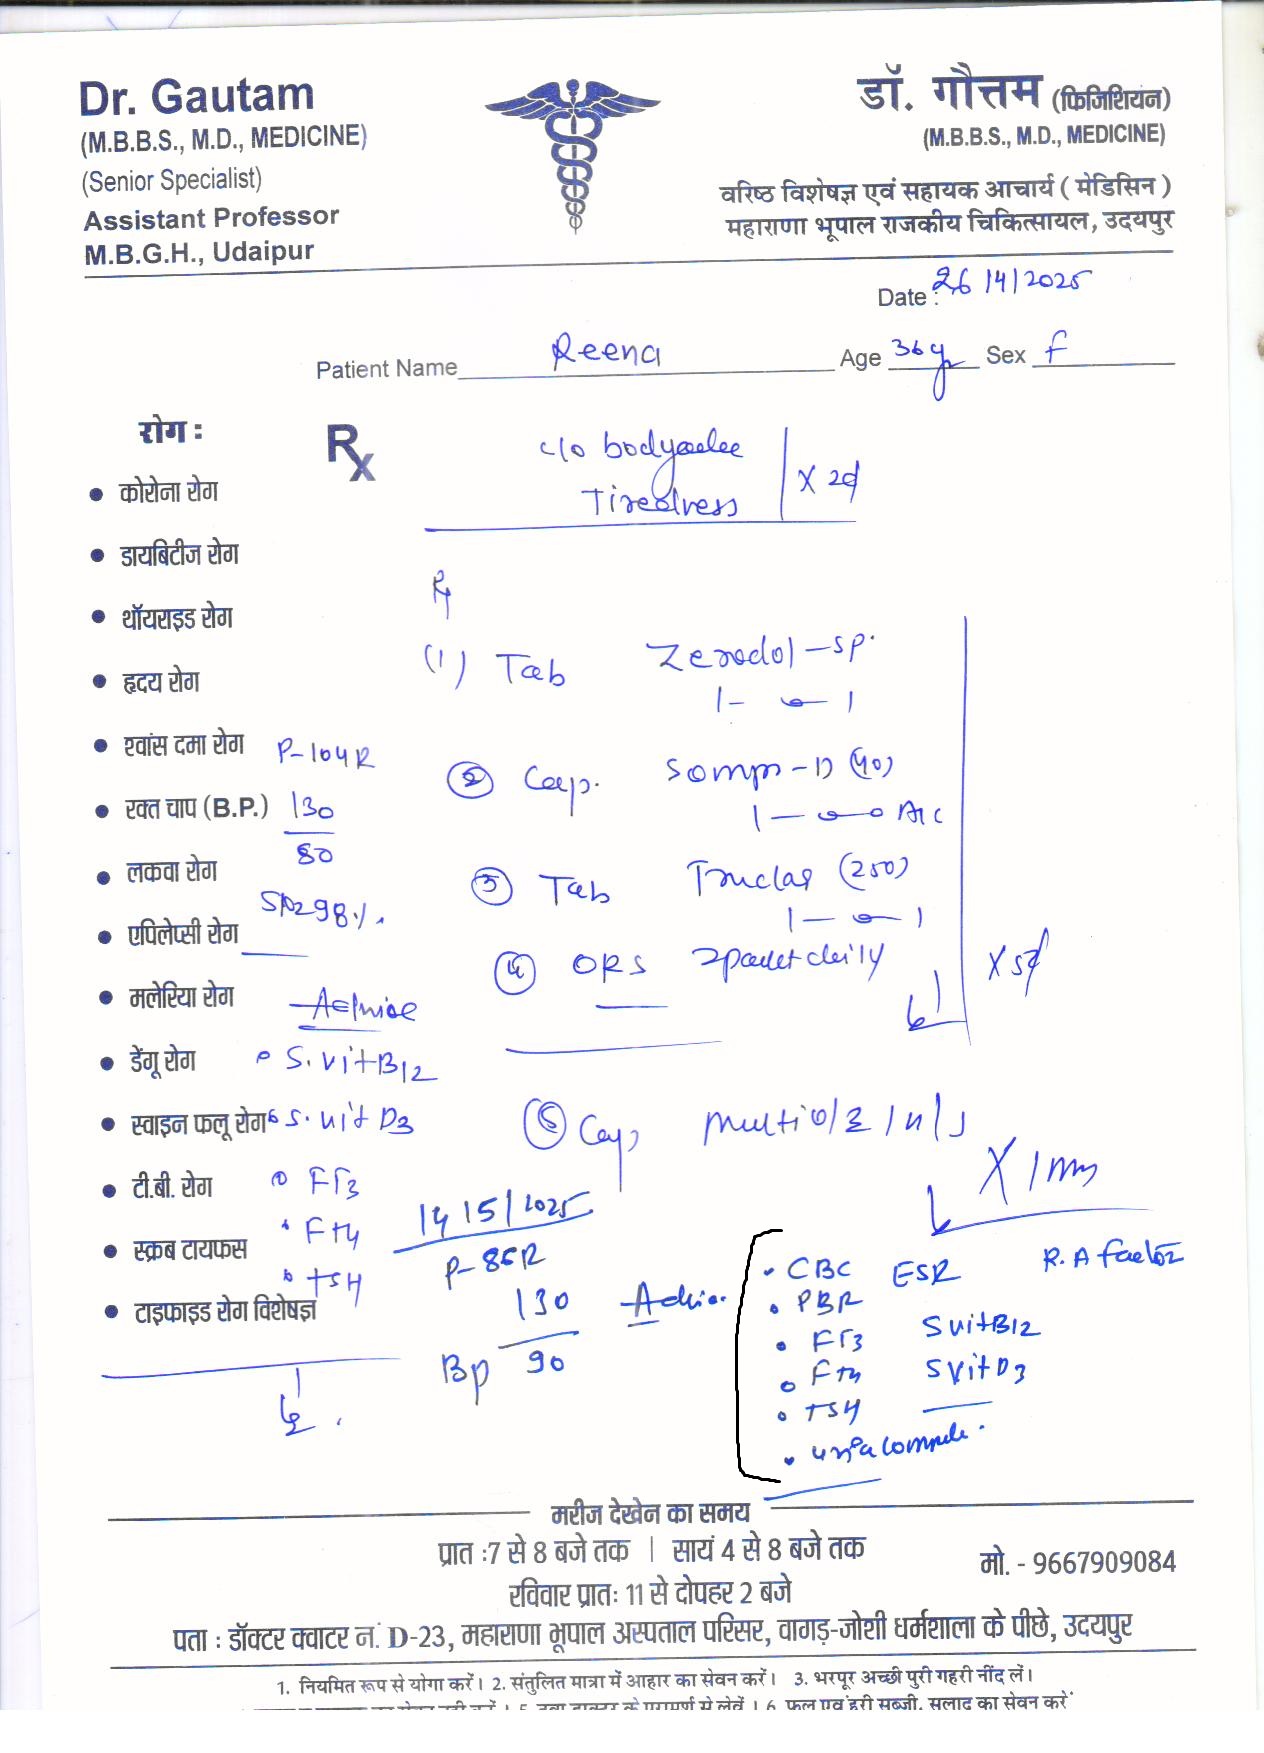 Dr. Gautam
(M.B.B.S., M.D., MEDICINE)
(Senior Specialist)
Assistant Professor
M.B.G.H., Udaipur
डॉ. गौत्तम (फिजिशियन)
(M.B.B.S., M.D., MEDICINE)
वरिष्ठ विशेषज्ञ एवं सहायक आचार्य ( मेडिसिन )
महाराणा भूपाल राजकीय चिकित्सायल, उदयपुर
Date : 26/4/2025
Patient Name Reena Age 36y Sex F
रोग :
Rx
c/o bodyache
Tiredness X 2d
• कोरोना रोग
• डायबिटीज रोग
• थॉयराइड रोग
• हृदय रोग
• श्वांस दमा रोग
• रक्त चाप (B.P.)
• लकवा रोग
• एपिलेप्सी रोग
• मलेरिया रोग
• डेंगू रोग
• स्वाइन फलू रोग
• टी.बी. रोग
• स्क्रब टायफस
• टाइफाइड रोग विशेषज्ञ
P-104R
130
80
SPO2 98%.
Advice
S. Vit B12
S. Vit D3
FT3
FT4
TSH
Rx
(1) Tab Zerodol-SP.
1- 0- 1
(2) Cap. Somp-D (40)
1-0-0 AC
(3) Tab (250)
1-0-1
(4) ORS 2 packet daily
X 5d
(5) Cap
14/5/2025
P-86R
Bp 130
90
Advice
• CBC ESR R.A factor
• PBF
• FT3 S Vit B12
• FT4 S Vit D3
• TSH
• Urine complete.
मरीज देखेन का समय
प्रात :7 से 8 बजे तक | सायं 4 से 8 बजे तक
रविवार प्रातः 11 से दोपहर 2 बजे
मो. - 9667909084
पता : डॉक्टर क्वाटर नं. D-23, महाराणा भूपाल अस्पताल परिसर, वागड़-जोशी धर्मशाला के पीछे, उदयपुर
1. नियमित रूप से योगा करें। 2. संतुलित मात्रा में आहार का सेवन करें। 3. भरपूर अच्छी पुरी गहरी नींद लें।
6. फल एवं हरी सब्जी, सलाद का सेवन करें